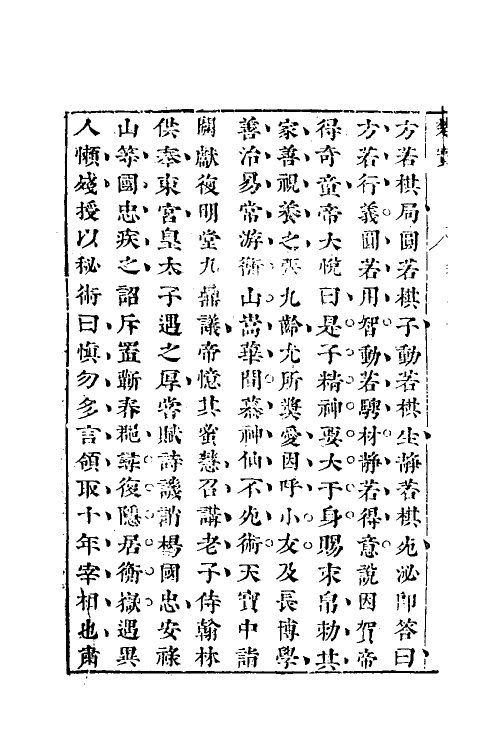 方若棋局圓若棋子動若棋生靜若棋死泌即答曰
方若行義圓若用智動若騁材靜若得意說因賀帝
得奇童帝大悅曰是子精神要大于身賜束帛勅其
家善視養之張九齡尤所奬愛因呼小友及長博學
善治易常游衡山嵩華間慕神仙不死術天寶中詣
闕獻復明堂九鼎議帝憶其蚤慧召講老子侍翰林
供奉東宮皇太子遇之厚嘗賦詩譏誚楊國忠安祿
山等國忠疾之詔斥置蘄春郡尋復隱居衡嶽遇異
人懶殘授以秘術曰慎勿多言領取十年宰相也肅